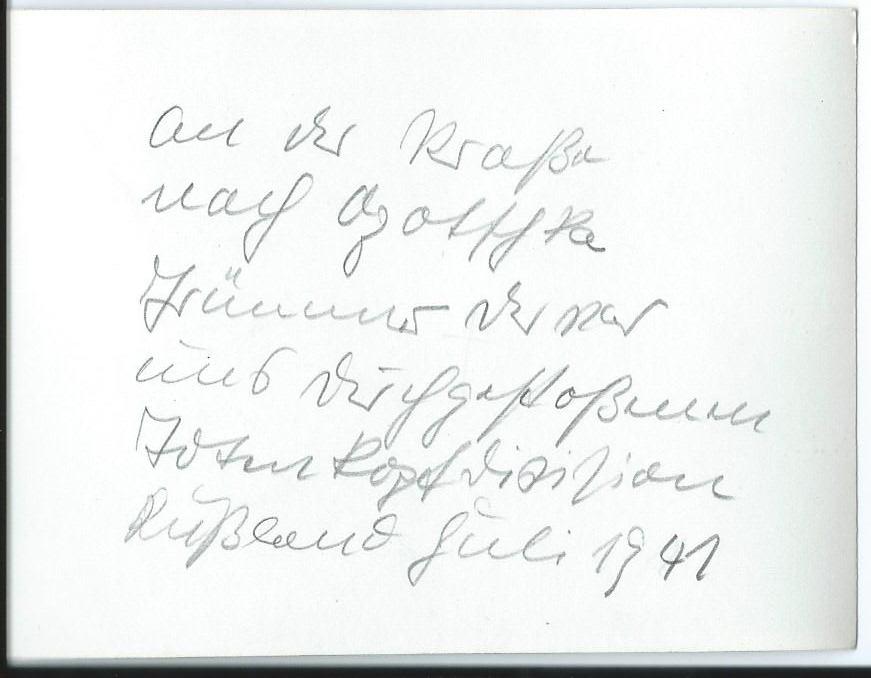 An der Straße
nach Opotschka
Trümmer der vor
uns durchgestoßenen
Totenkopfdivision
Rußland Juli 1941